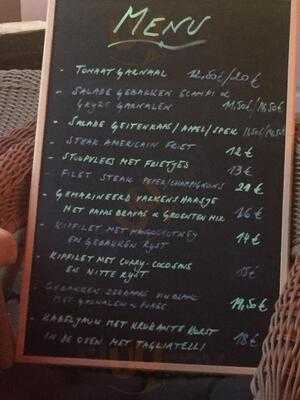 MENU
- TOMAAT GARNAAL 12,50€/20€
- SALADE GEBAKKEN SCAMPI &
GRIJZE GARNALEN 11,50€/16,50€
- SALADE GEITENKAAS/APPEL/SPEK 11,50€/16,50€
- STEAK AMERICAIN FRIET 12€
- STOOFVLEES MET FRIETJES 13€
- FILET STEAK PEPER/CHAMPIGNONS 21€
- GEMARINEERD VARKENSHAASJE
MET PATAS BRAVAS & GROENTEN MIX 16€
- KIPFILET MET MANGOCHUTNEY
EN GEBAKKEN RIJST 14€
- KIPFILET MET CURRY-COCOSAUS
EN WITTE RIJST 15€
- GEBAKKEN ZEEBAARS
MET GARNALEN & PUREE 19,50€
- KABELJAUW MET KROKANTE KORST
IN DE OVEN MET TAGLIATELLI 18€